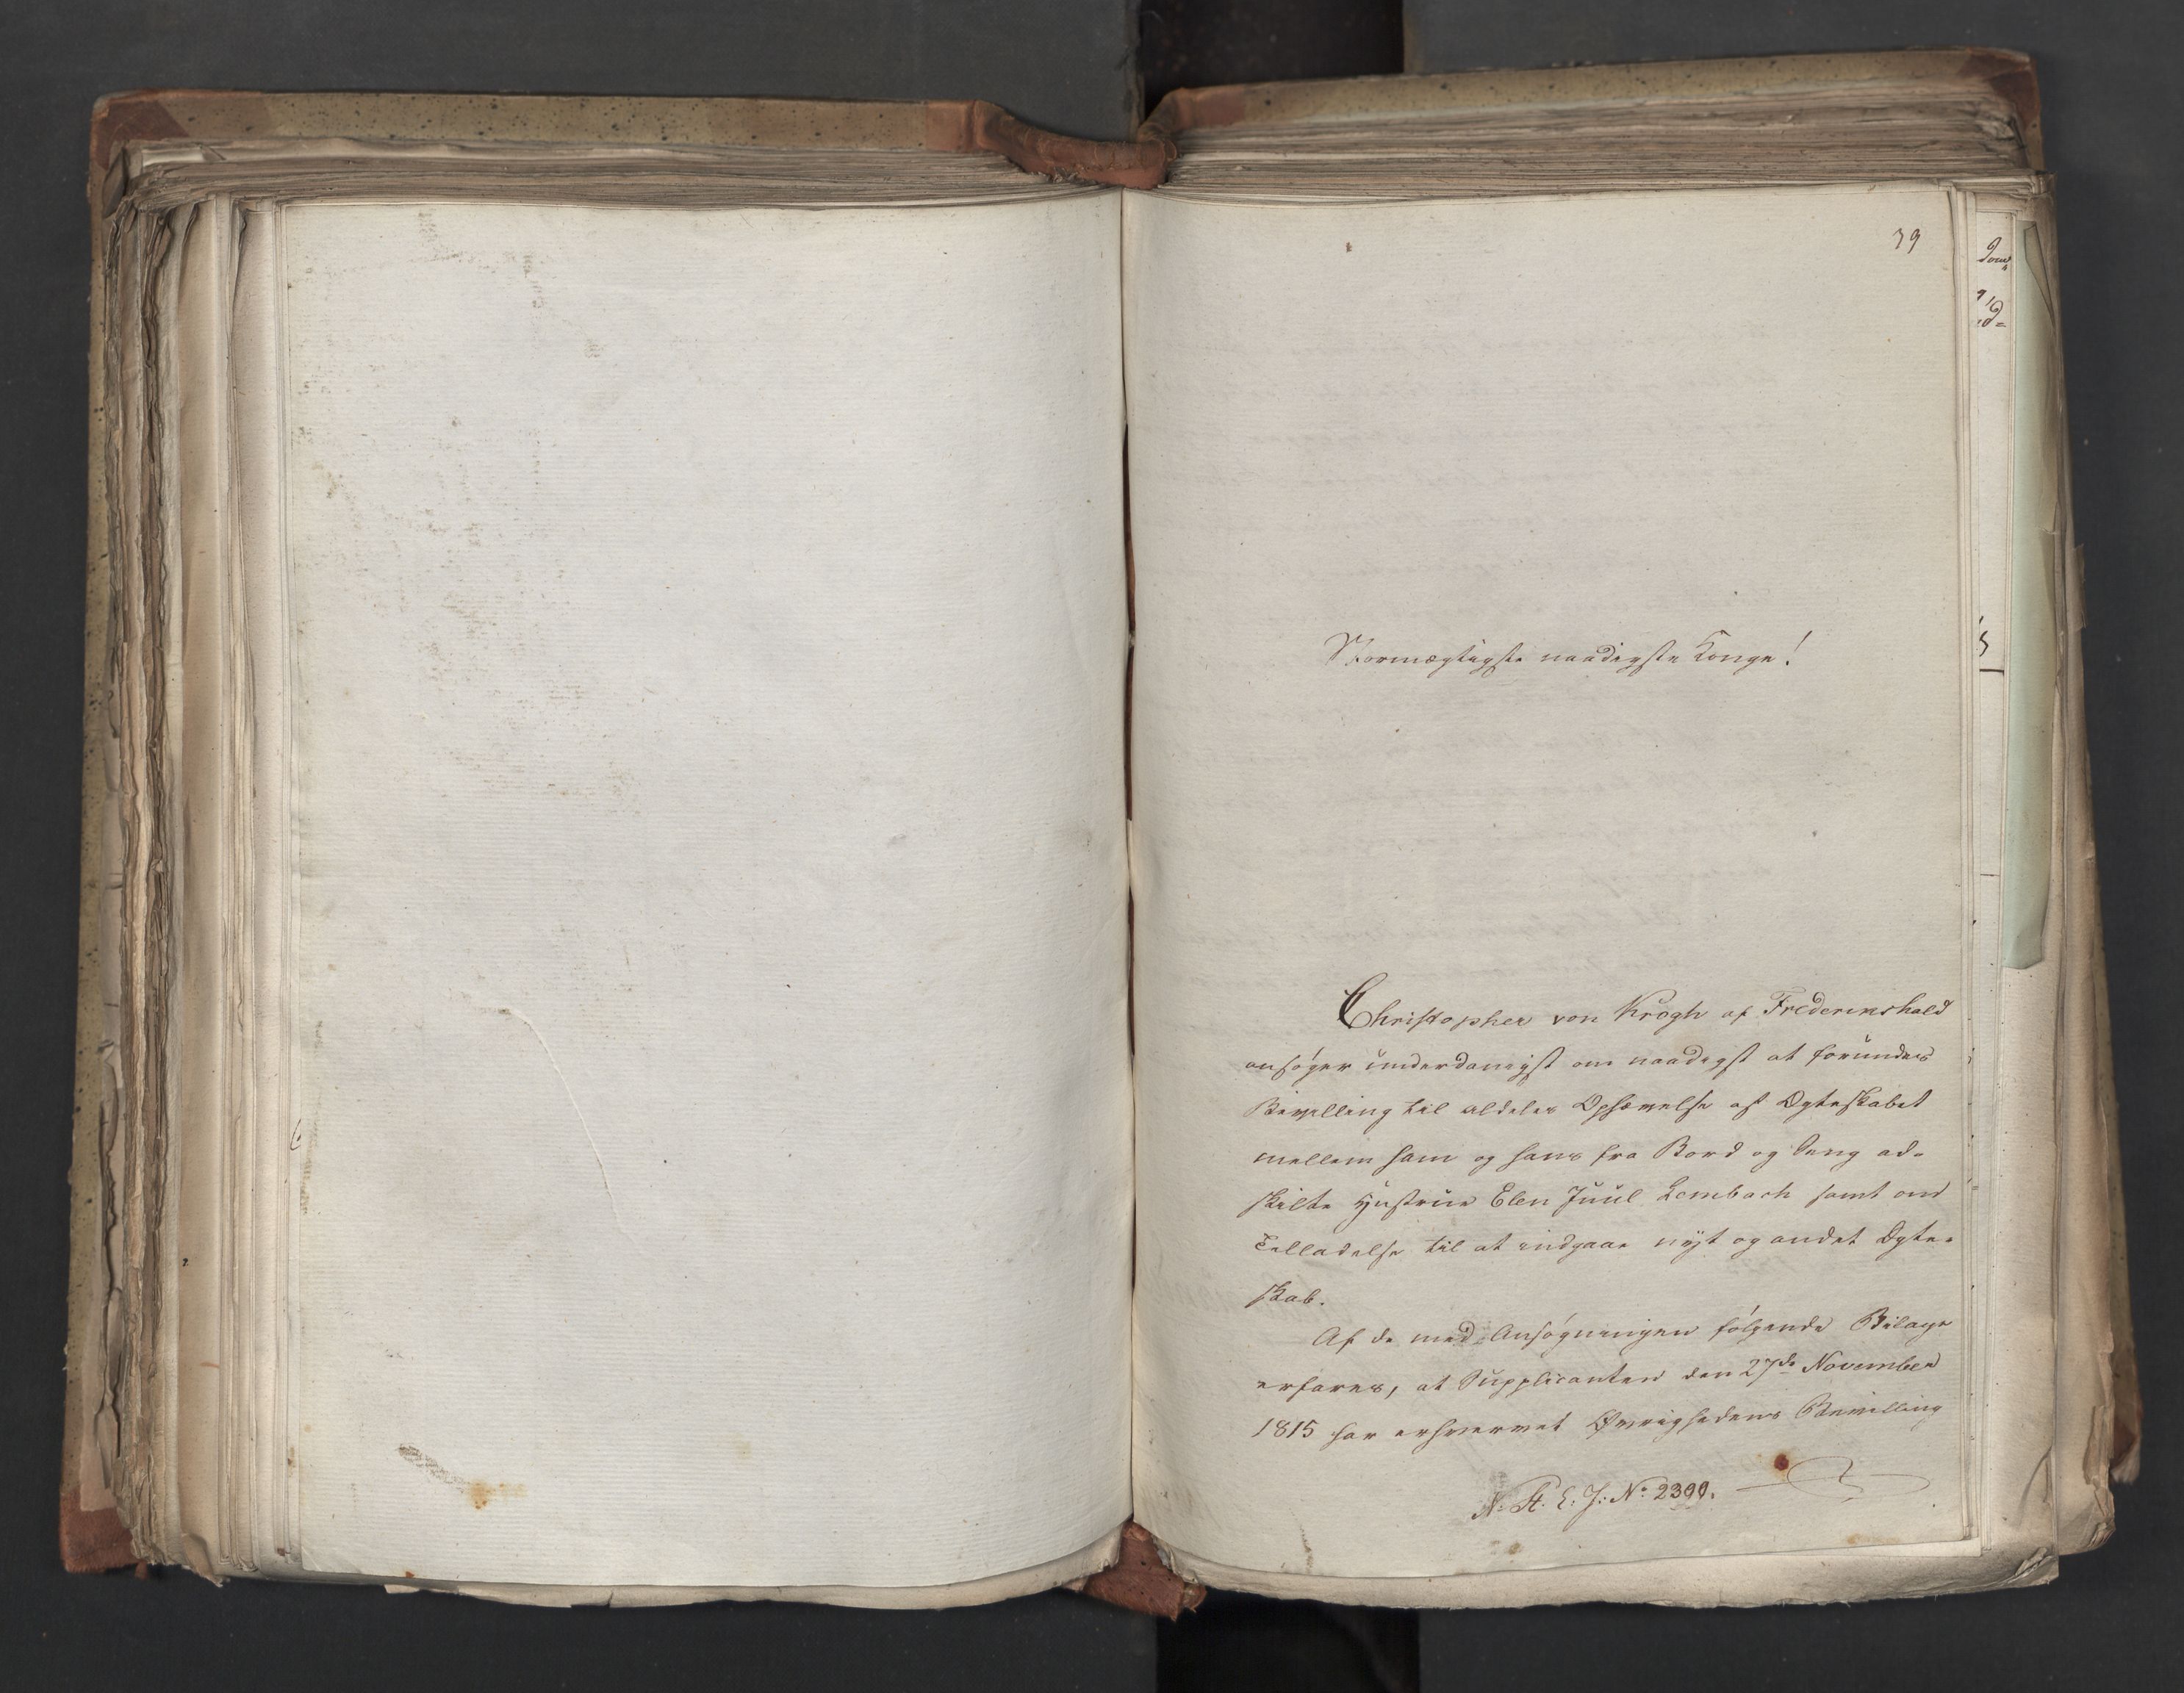 79
Stormægtigste naadigste Konge!
Christopher von Krogh af Fredericshald
ansøger underdanigst om naadigst at forundes
Bevilling til aldeles Ophævelse af Ægteskabet
mellem ham og hans fra Bord og Seng ad-
skilte Hustrue Elen Juul Lembach samt om
Tilladelse til at indgaae nyt og andet Ægte-
skab.
Af de med Ansøgningen følgende Bilage
erfares, at Supplicanten den 27de November
1815 har erhvervet Øvrighedens Bevilling
N: St. E: J: No 2300.